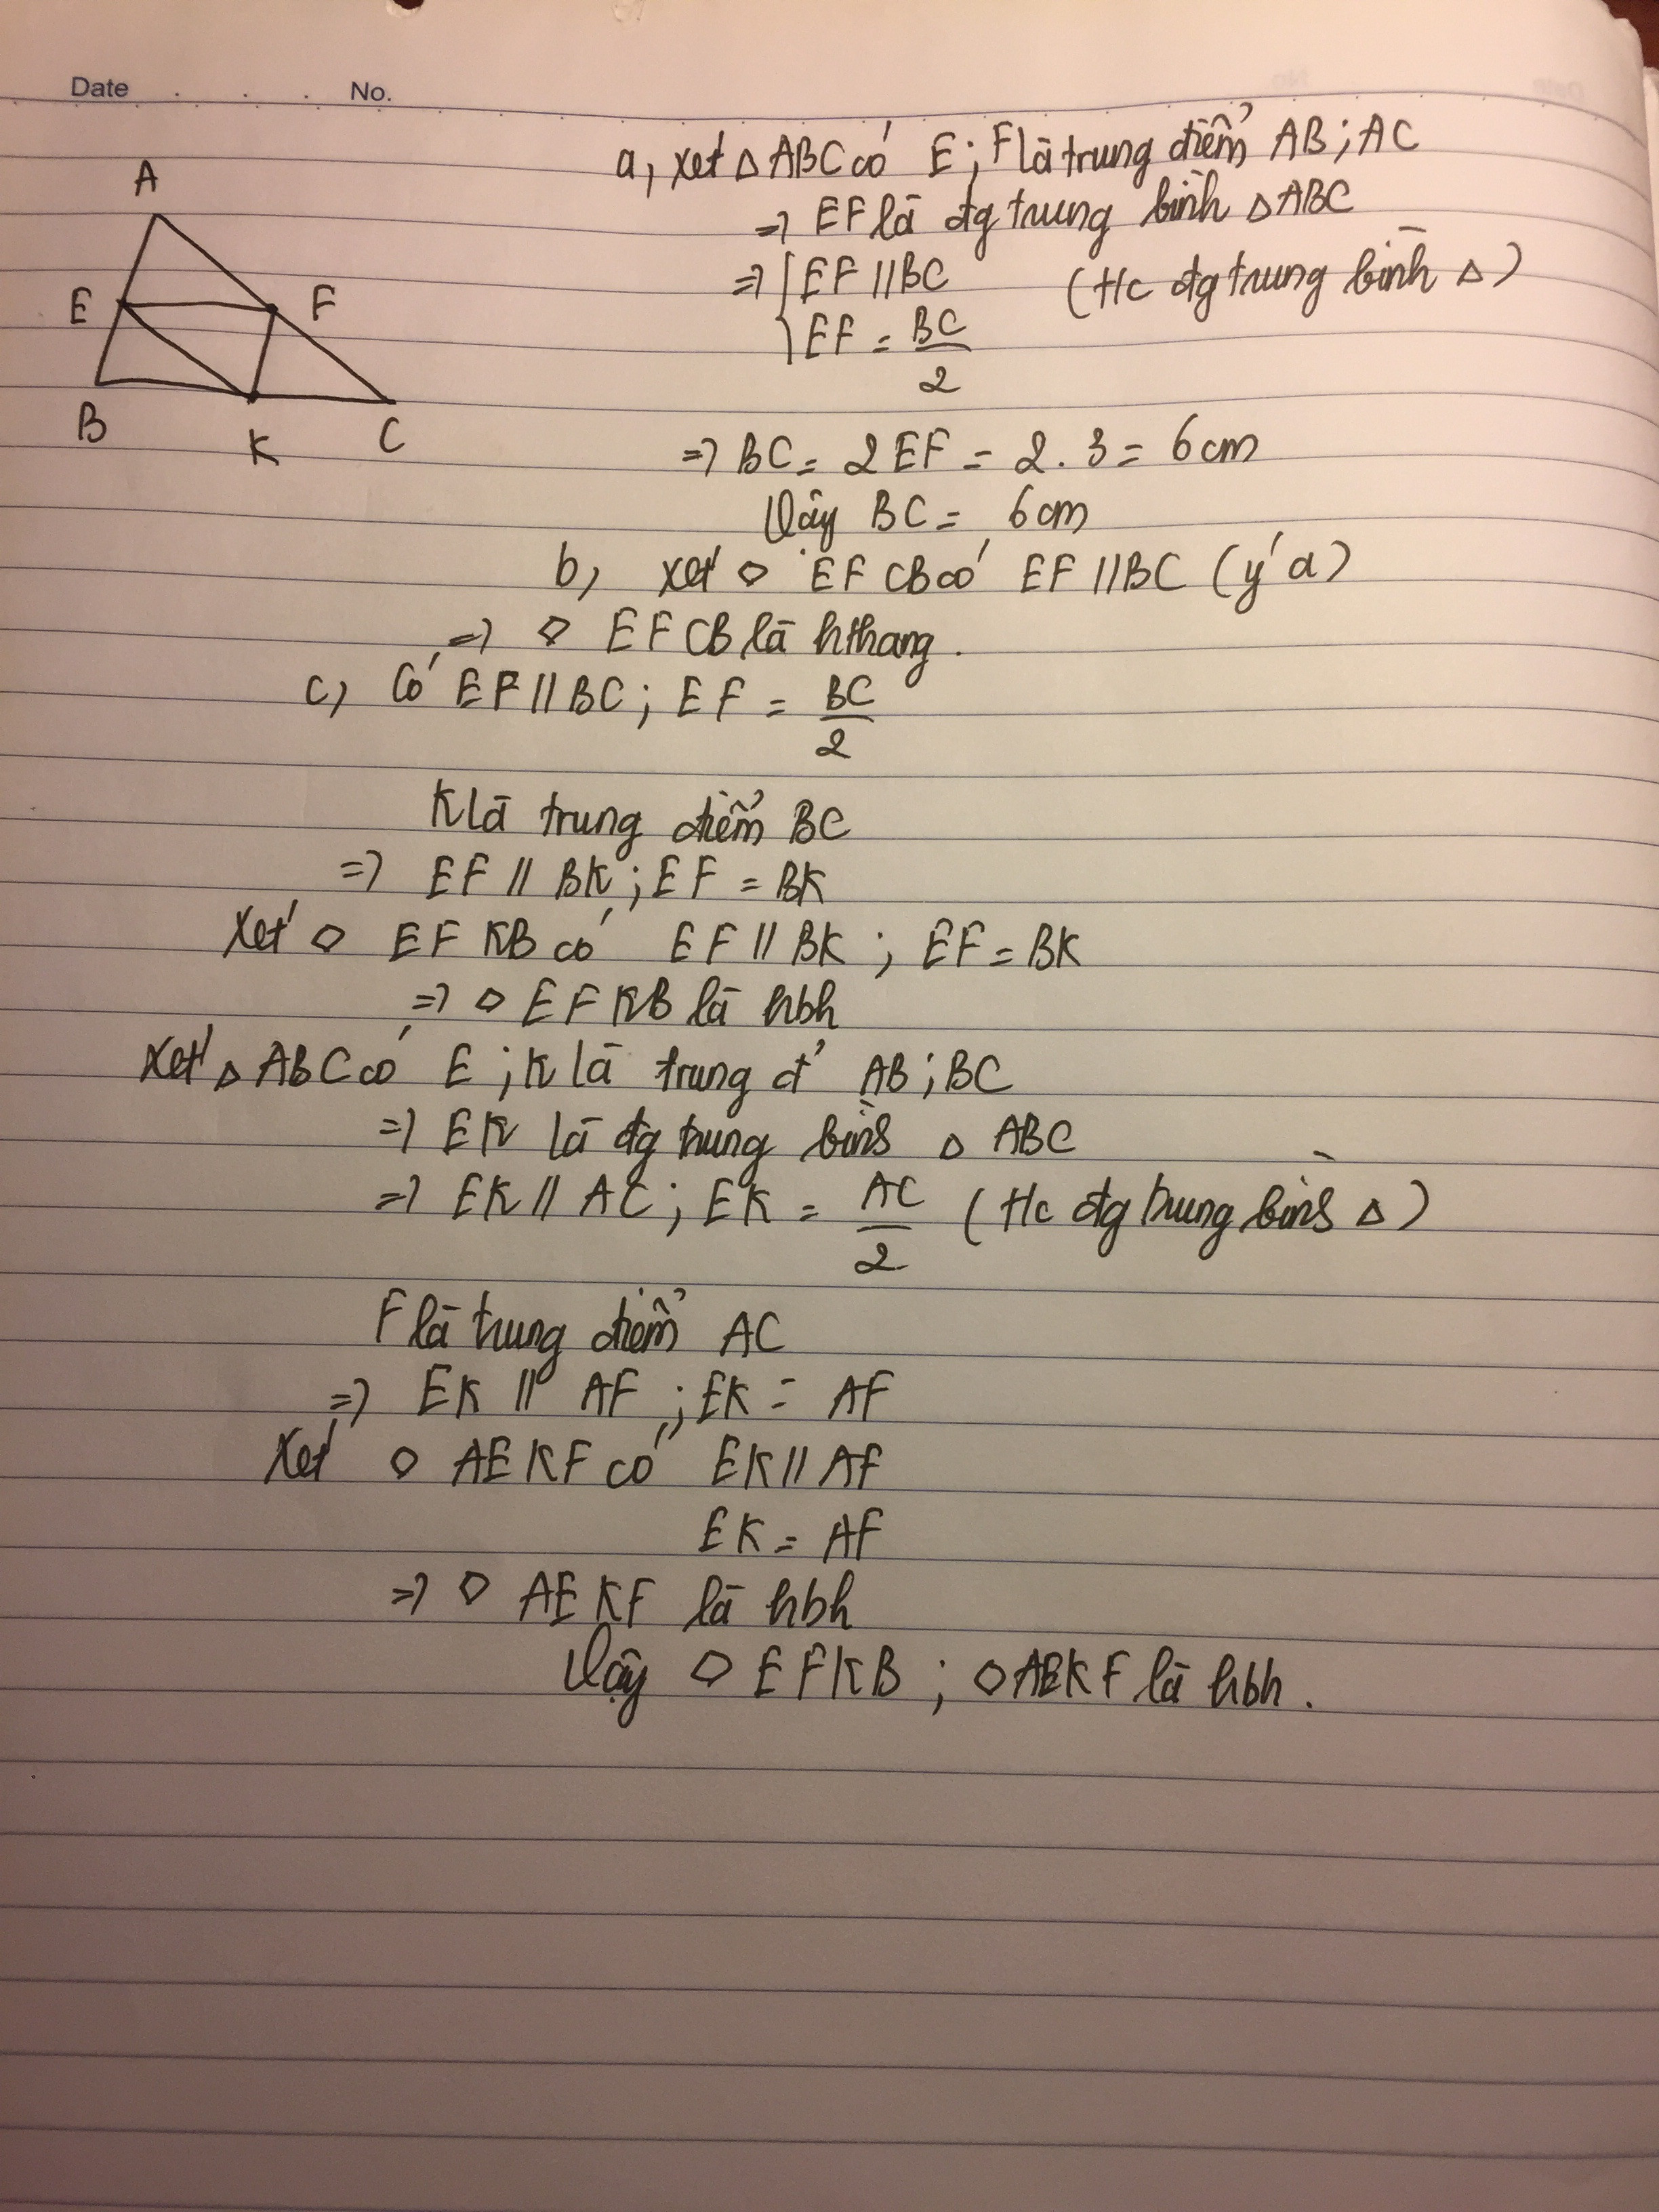 Date No.
A
E F
B K C
a, xét △ ABC có E; F là trung điểm AB; AC
=> EF là đg trung bình △ ABC
=> { EF // BC (t/c đg trung bình △)
EF = BC/2
=> BC = 2EF = 2.3 = 6cm
Vậy BC = 6cm
b, xét ◇ EFCB có EF // BC (ý a)
=> ◇ EFCB là hthang.
c, Có EF // BC; EF = BC/2
K là trung điểm BC
=> EF // BK; EF = BK
Xét ◇ EFKB có EF // BK; EF = BK
=> ◇ EFKB là hbh
Xét △ ABC có E; K là trung đ' AB; BC
=> EK là đg trung bình △ ABC
=> EK // AC; EK = AC/2 (t/c đg trung bình △)
F là trung điểm AC
=> EK // AF; EK = AF
Xét ◇ AEKF có EK // AF
EK = AF
=> ◇ AEKF là hbh
Vậy ◇ EFKB; ◇ AEKF là hbh.